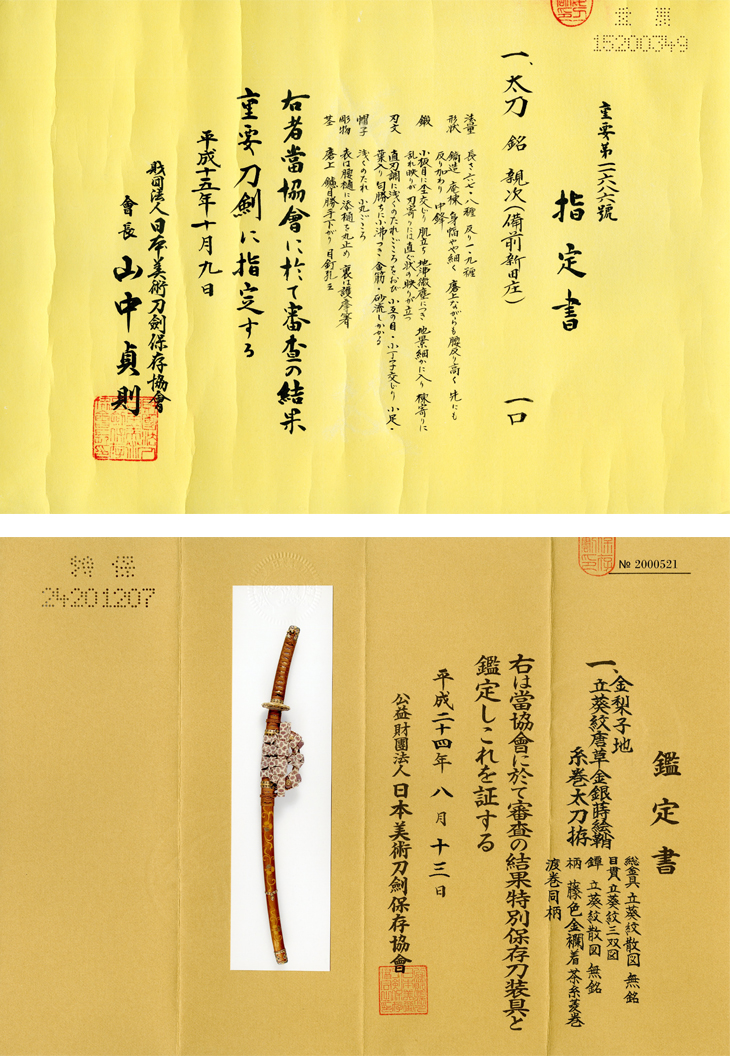 重要
15200349
重要第一一六八六號
指定書
一、太刀 銘 親次(備前新田庄) 一口
法量 長さ六七・八糎 反り一・九糎
形状 鎬造 庵棟 身幅やや細く 磨上ながらも腰反り高く 先にも
反り加わり 中鋒
鍛 小板目に杢交じり 肌立ち 地沸微塵につき 地景細かに入り 棟寄りに
乱れ映りが 刃寄りには直ぐ状の映りが立つ
刃文 直刃調に浅くのたれごころをおび 小互の目・小丁子交じり 小足・
葉入り 匂勝ちに小沸つき 金筋・砂流しかかる
帽子 浅くのたれ 小丸ごころ
彫物 表は腰樋に添樋を丸止め 裏は護摩箸
茎 磨上 鑢目勝手下がり 目釘孔
右者當協會に於て審査の結果
重要刀劍に指定する
平成十五年十月九日
財団法人日本美術刀劍保存協會
會長 山中貞則
特保
24201207
№ 2000521
鑑定書
一、金梨子地
立葵紋唐草金銀蒔絵鞘
糸巻太刀拵
総金具 立葵紋散図 無銘
目貫 立葵紋三双図
鐔 立葵紋散図 無銘
柄 藤色金襴着茶糸菱巻
渡巻同柄
右は當協會に於て審査の結果特別保存刀装具と
鑑定しこれを証する
平成二十四年八月十三日
公益財團法人日本美術刀劍保存協會